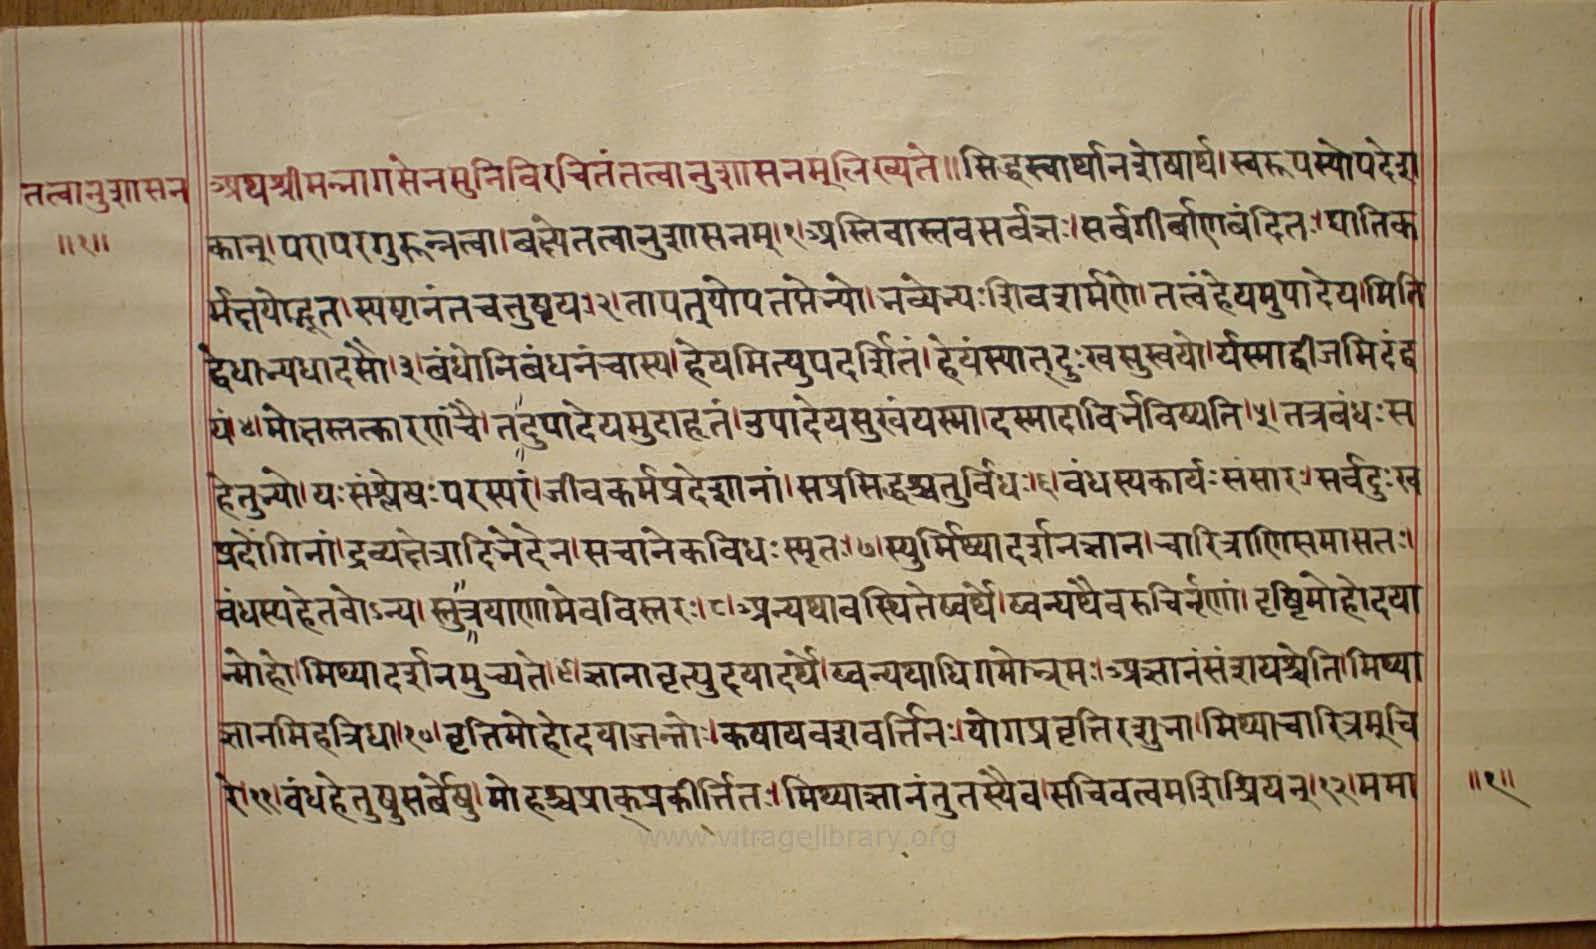 तत्वानुशासन
॥१॥
अथश्रीमन्नागसेनमुनिविरचितंतत्वानुशासनम्लिख्यते॥सिद्धस्वार्थानशेषार्थ।स्वरूपस्योपदेश
कान्।परापरगुरून्नत्वा।वक्ष्येतत्वानुशासनम्।१।अस्तिवास्तवसर्वज्ञः।सर्वगीर्बाणबंदितः।घातिक
र्मक्षयोद्भूत।स्पष्टानंतचतुष्टयः।२।तापत्रयोपतप्तेभ्यो।भव्येभ्यःशिवशर्मणे।तत्वंहेयमुपादेय।मिति
द्वेधाभ्यधादसौ।३।बंधोनिबंधनंचास्य।हेयमित्युपदर्शितं।हेयंस्यात्दुःखसुखयो।र्यस्माद्बीजमिदंद्व
यं।४।मोक्षस्तत्कारणंचै।तदुपादेयमुदाहृतं।उपादेयसुखंयस्मा।दस्मादाविर्भविष्यति।५।तत्रबंधःस
हेतुभ्यो।यःसंश्लेषःपरस्परं।जीवकर्मप्रदेशानां।सप्रसिद्धश्चतुर्विधः।६।बंधस्यकार्यःसंसारः।सर्वदुःख
प्रदोंगिनां।द्रव्यक्षेत्रादिभेदेन।सचानेकविधःस्मृतः।७।स्युर्मिथ्यादर्शनज्ञान।चारित्राणिसमासतः।
बंधस्यहेतवोऽन्य।स्तुत्रयाणामेवविस्तरः।८।अन्यथावस्थितेष्वर्थे।ष्वन्यथैवरुचिर्नृणां।दृष्टिमोहोदया
न्मोहो।मिथ्यादर्शनमुच्यते।९।ज्ञानावृत्युदयादर्थे।ष्वन्यथाधिगमोभ्रमः।अज्ञानंसंशयश्चेति।मिथ्या
ज्ञानमिहत्रिधा।१०।वृत्तिमोहोदयाज्जन्तोः।कषायवशवर्त्तिनः।योगप्रवृत्तिरशुभा।मिथ्याचारित्रमूचि
रे।११।बंधहेतुषुसर्बेषु।मोहश्चप्राक्प्रकीर्त्तितः।मिथ्याज्ञानंतुतस्यैव।सचिवत्वमशिश्रियन्।१२।ममा
॥१॥
www.vitragelibrary.org